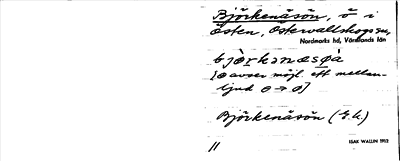 Björkenäsön, ö i
Östen, Östervallskogs sn,
Nordmarks hd, Värmlands län
[o avser möjl. ett mellan-
ljud o → ø]
Björkenäsön (G.k.)
11
ISAK WALLIN 1912